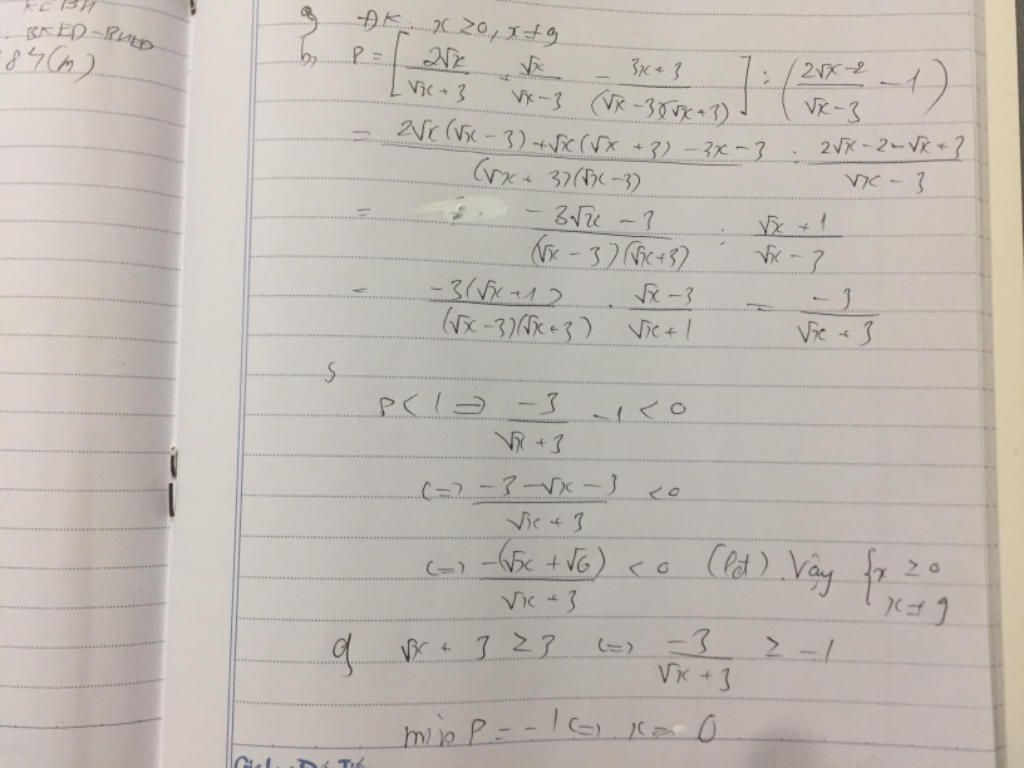 KEBH
BKED-BHED
87(m)
a, ĐK: x ≥ 0, x ≠ 9
b, P = [ 2√x / (√x + 3) + √x / (√x - 3) - (3x + 3) / ((√x - 3)(√x + 3)) ] : ( (2√x - 2) / (√x - 3) - 1 )
= (2√x(√x - 3) + √x(√x + 3) - 3x - 3) / ((√x + 3)(√x - 3)) : (2√x - 2 - √x + 3) / (√x - 3)
= (-3√x - 3) / ((√x - 3)(√x + 3)) : (√x + 1) / (√x - 3)
= -3(√x + 1) / ((√x - 3)(√x + 3)) . (√x - 3) / (√x + 1) = -3 / (√x + 3)
P < 1 => -3 / (√x + 3) - 1 < 0
<=> (-3 - √x - 3) / (√x + 3) < 0
<=> -(√x + √6) / (√x + 3) < 0 (lđ). Vậy { x ≥ 0 x ≠ 9
d √x + 3 ≥ 3 <=> -3 / (√x + 3) ≥ -1
min P = -1 <=> x = 0